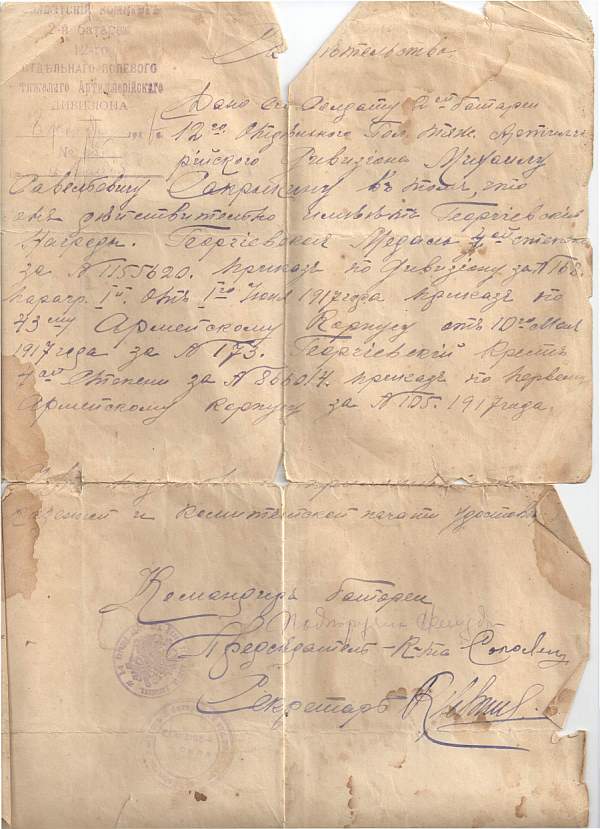 Солдатский комитет
2-й батареи
12-го
ОТДѢЛЬНАГО ПОЛЕВОГО
тяжелаго Артиллерійскаго
ДИВИЗІОНА
Дано сіе Солдату 2ой батареи
12го Отдѣльнаго Пол. тяж. Артилле-
рійского Дивизіона Михаилу
Савельевичу въ томъ, что
онъ дѣйствительно имѣетъ Георгіевскія
Награды. Георгіевской Медаль 4ой степени
за № 1155620. приказъ по Дивизіону за № 168
парагр. Iй. отъ 1го Июня 1917 года приказъ по
43му Армейскому Корпусу отъ 10го Мая
1917 года за № 173. Георгіевскій Крестъ
4ой Степени за № 866014. приказъ по первому
Армейскому корпусу за № 105. 1917 года.
казенной и Комитетской печати удостов
Командиръ батареи
Подпоручикъ
Предсѣдатель К-та
Секретарь